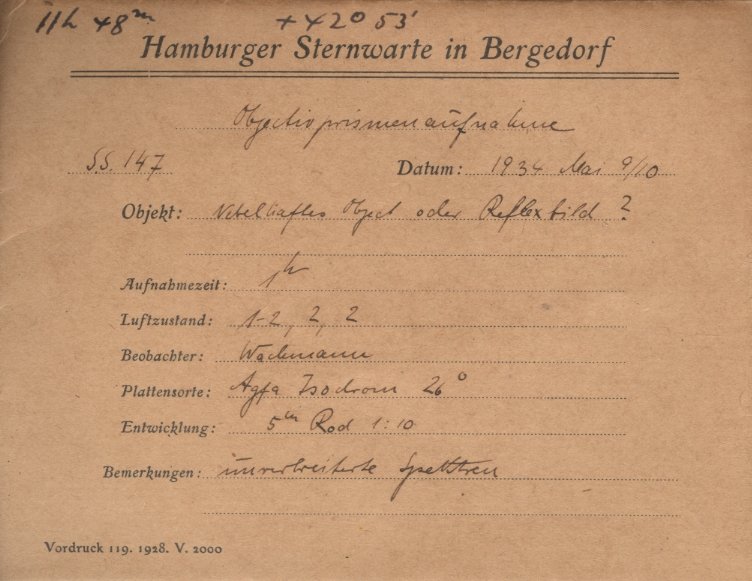 11h 48m +42° 53'
Hamburger Sternwarte in Bergedorf
Objectivprismenaufnahme
S.S. 147 Datum: 1934 Mai 9/10
Objekt: Nebelhaftes Object oder Reflexbild ?
Aufnahmezeit: 1h
Luftzustand: 1-2, 2, 2
Beobachter: Wachmann
Plattensorte: Agfa Isochrom 26°
Entwicklung: 5m Rod 1:10
Bemerkungen: unverbreiterte Spektren
Vordruck 119. 1928. V. 2000